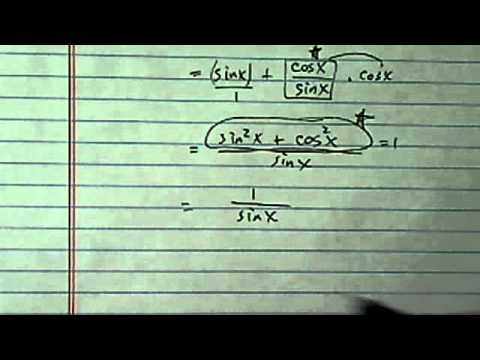 = (sinx)/1 + cosx/sinx · cosx
= sin²x + cos²x/sinx = 1
= 1/sinx